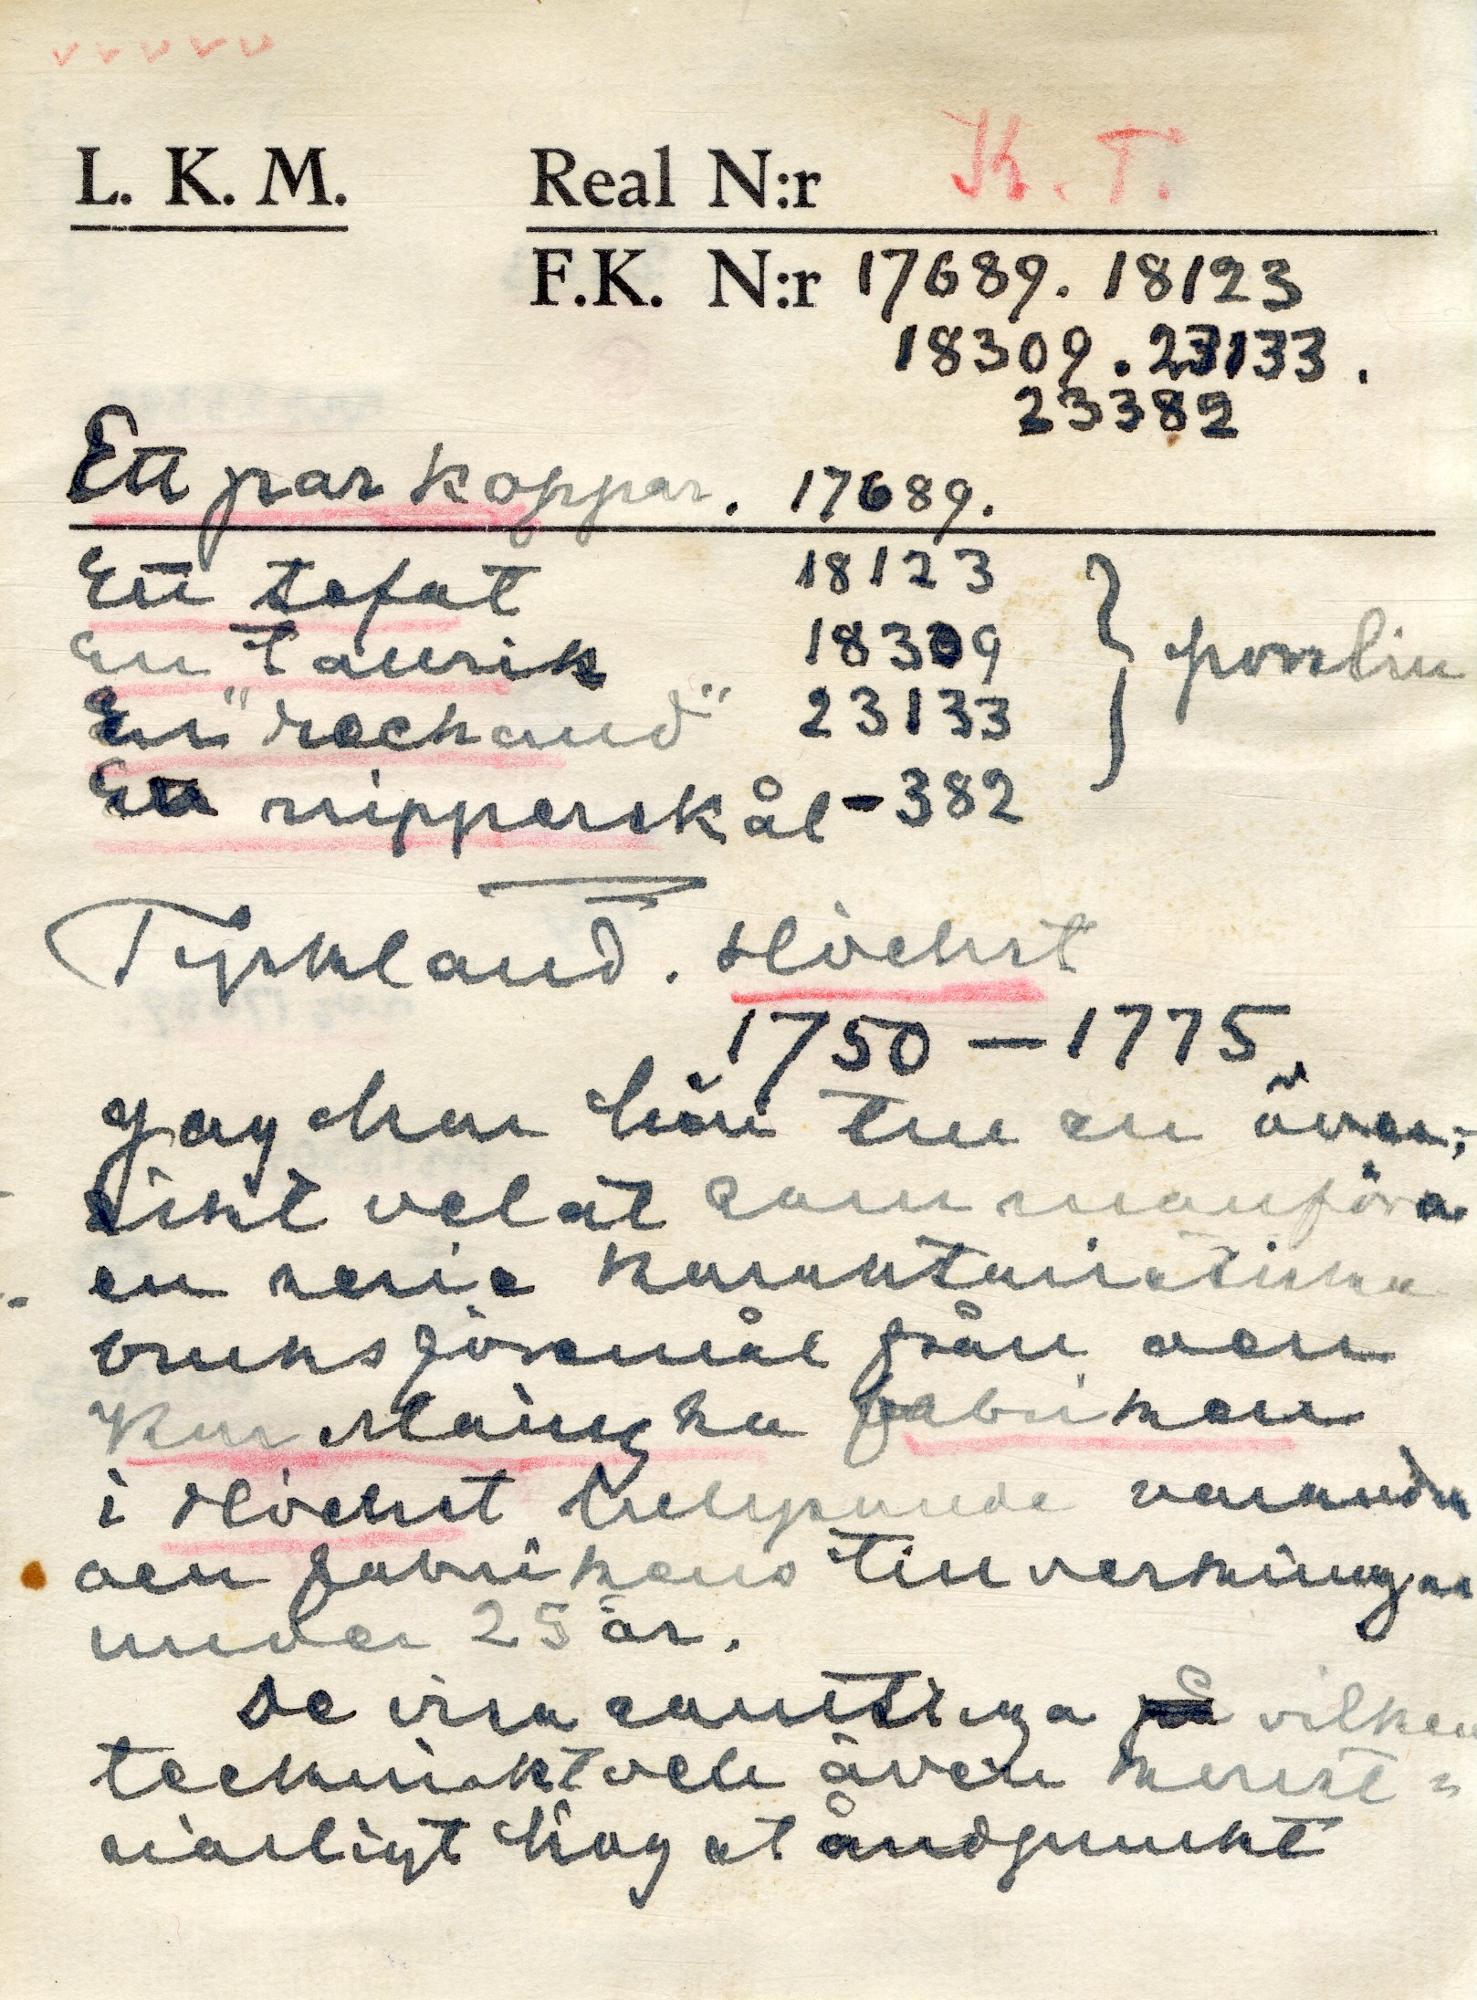 L. K. M. Real N:r K. T.
F.K. N:r 17689. 18123
18309. 23133.
23382
Ett par koppar. 17689.
Ett tefat 18123
En tallrik 18309 } porslin
En "rechaud" 23133
En sipperskål - 382
Tyskland. Höchst
1750 — 1775.
Jag har här till en över-
sikt velat sammanföra
en serie karaktäristiska
bruksföremål från den
Kur Mainzska fabriken
i Höchst belysande varandra
och fabrikens tillverkningar
under 25 år.
De visa samtliga på vilken
tekniskt och även konst-
närligt hög ståndpunkt